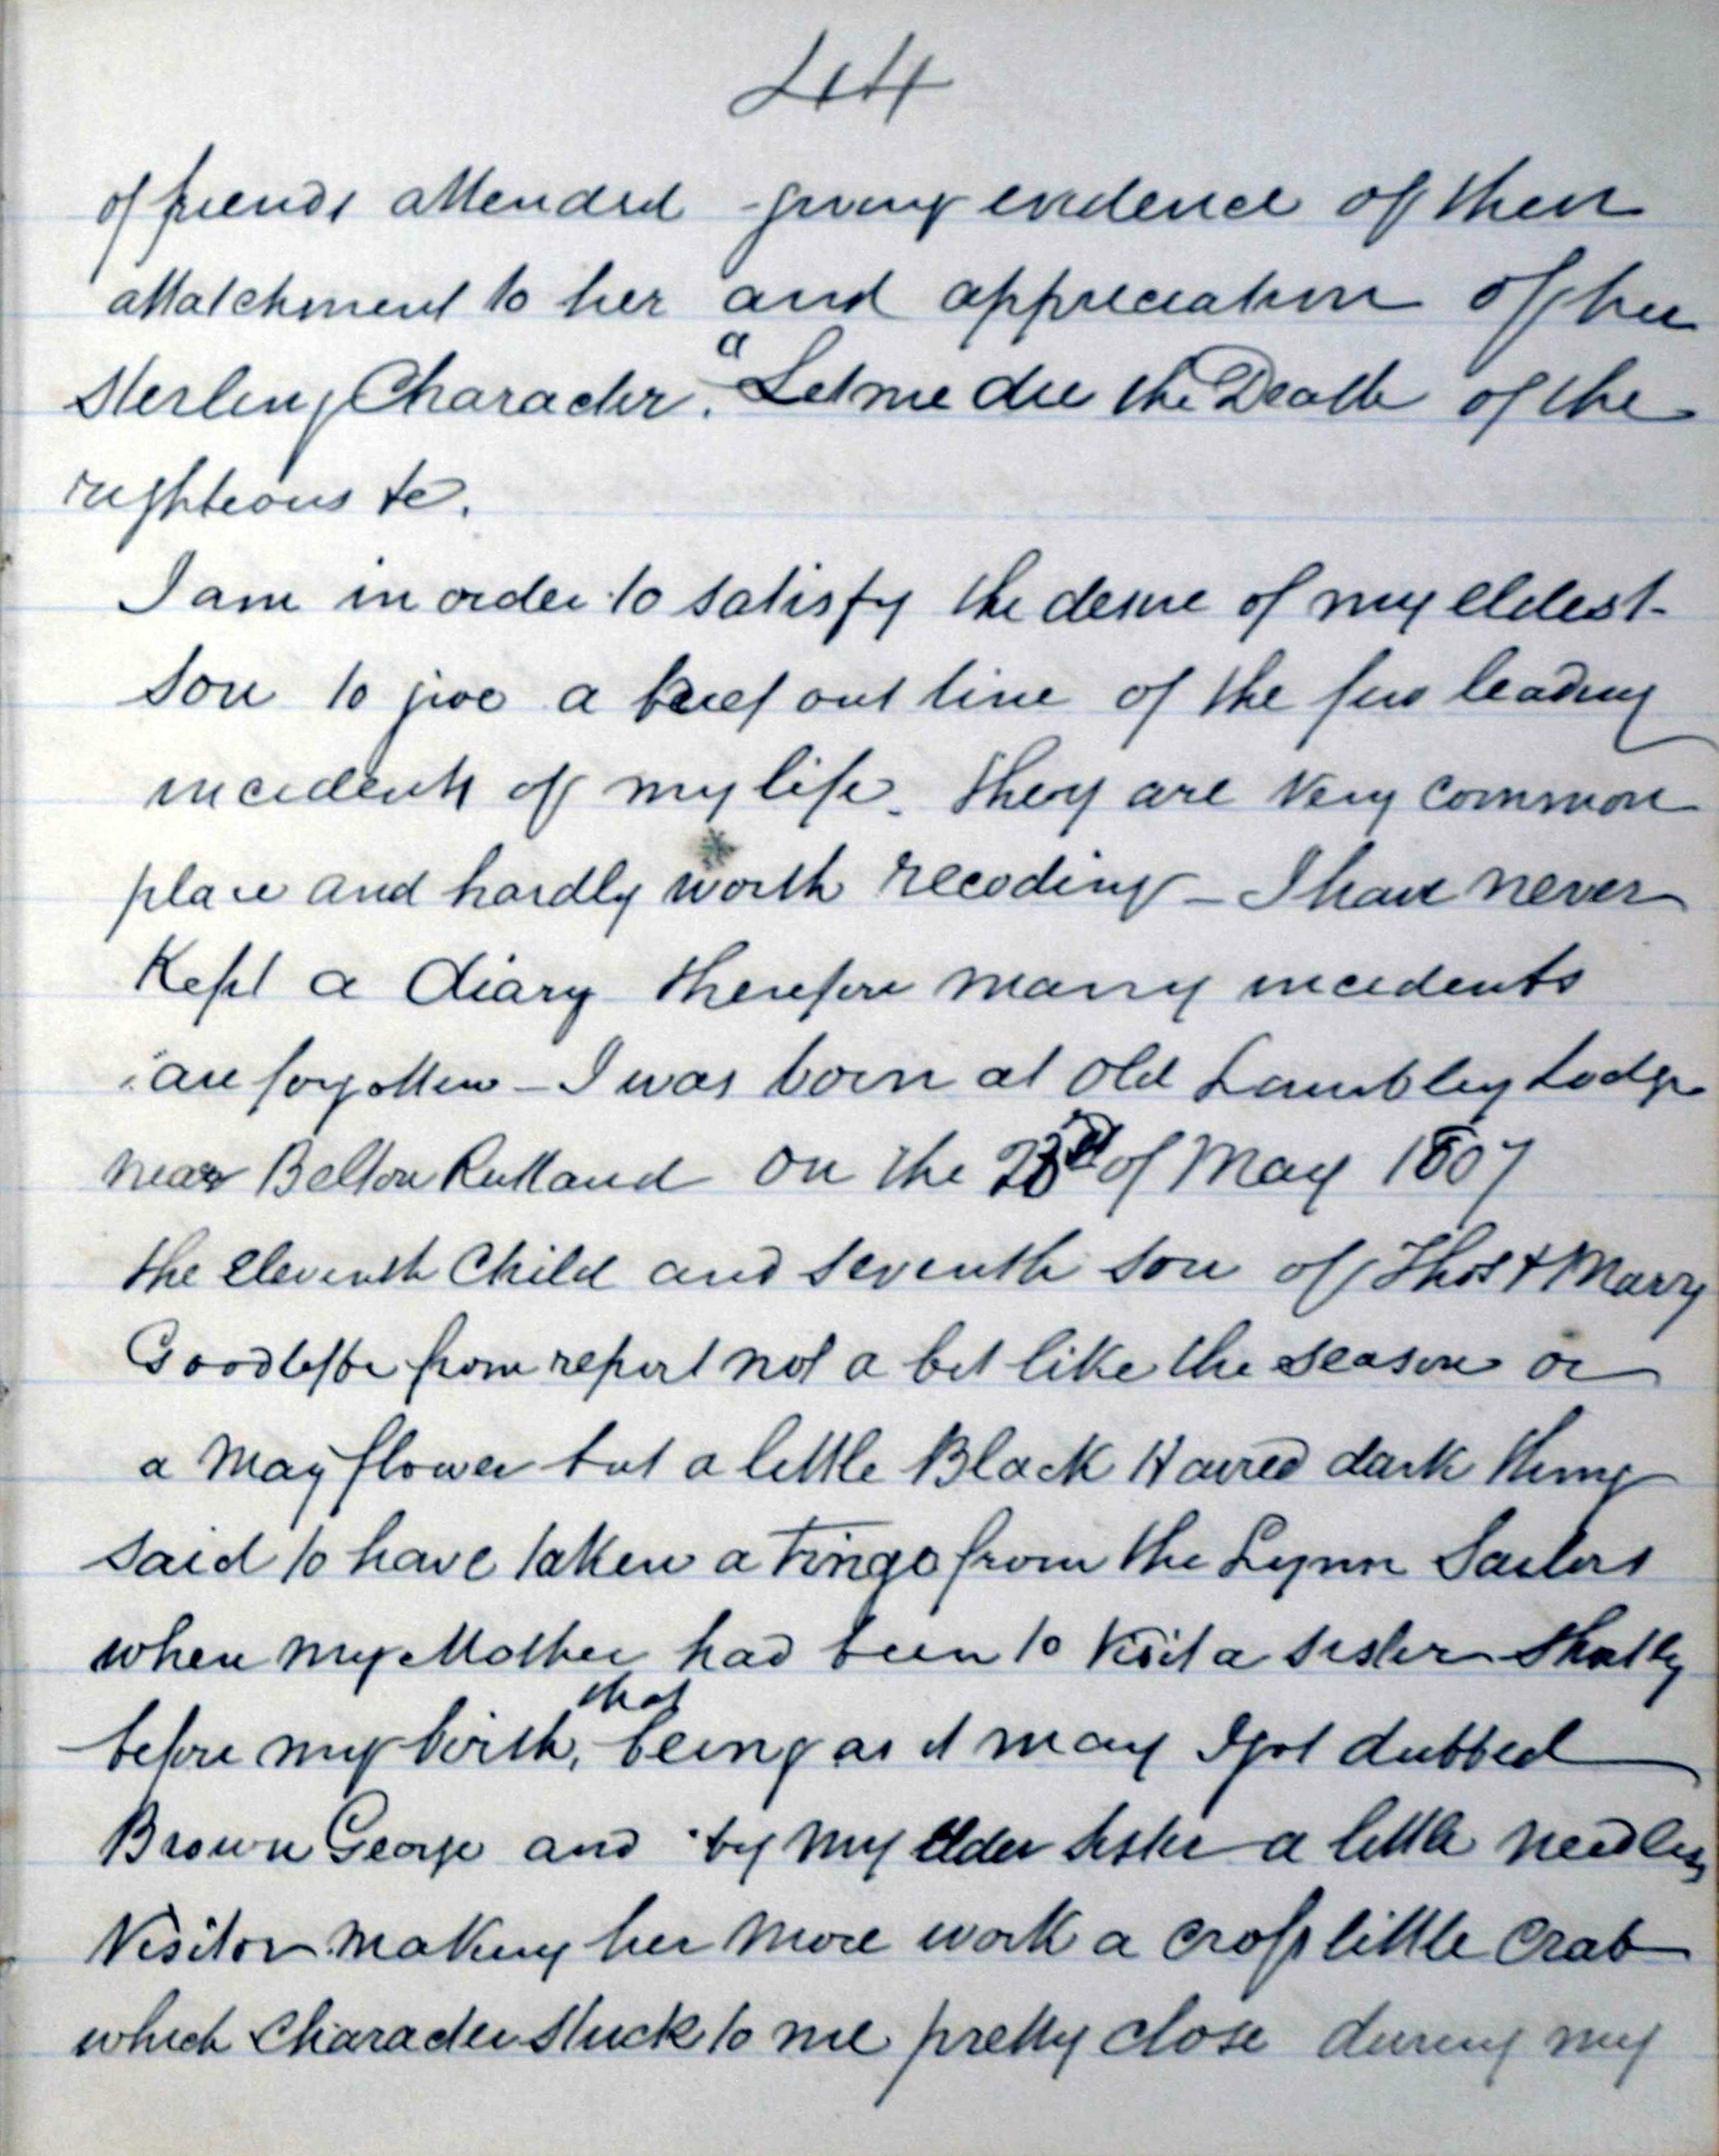 44
of friends attended - giving evidence of their
attatchment to her and appreciation of her
Sterling Character. "Let me die the Death of the
righteous &c.
I am in order to satisfy the desire of my eldest
Son to give a brief out line of the few leading
incidents of my life. they are very common
place and hardly worth recoding - I have never
Kept a diary therefore many incidents
are forgotten - I was born at Old Lambley Lodge
near Belton Rutland on the 23rd of May 1807
the eleventh Child and seventh son of Thos & Mary
from report not a bit like the season or
a May flower but a little Black Haired dark thing
said to have taken a Tinge from the Lynn Sailors
when my Mother had been to Visit a sister shortly
before my birth, that being as it may I got dubbed
Brown George and by my elder sister a little needless
Visitor making her more work a cross little Crab
which Character stuck to me pretty close during my